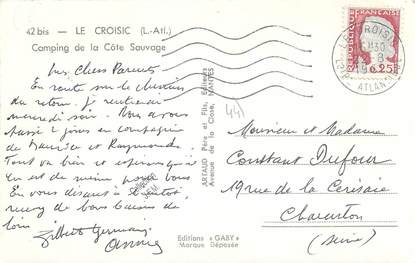 42 bis — LE CROISIC (L.-Atl.)
Camping de la Côte Sauvage
Mes Chers Parents
En route sur le chemin
du retour. Je rentrerai
mercredi soir. Nous avons
passé 2 jours en compagnie
de Maurice et Raymonde.
Tout va bien et espérons qu'il
en est de même pour vous
En vous disant à bientôt
recevez bons baisers de
loin.
Gilbert Germaine
ARTAUD Père et Fils, Editeurs
Avenue de la Close, NANTES
Editions « GABY »
Marque Déposée
44
REPUBLIQUE FRANÇAISE
0,25
LE CROISIC
ATLAN
Monsieur et Madame
Constant Dufour
19 rue de la Cerisaie
Charenton
(Seine)